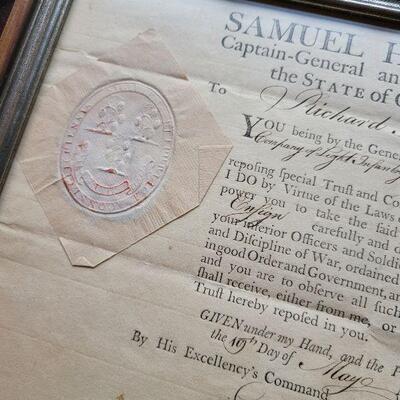 SAMUEL H
Captain-General an
the STATE of C
To Richard
YOU being by the Genera
Company of Light Infantry
reposing special Trust and Co
I DO by Virtue of the Laws o
power you to take the said
Ensign carefully and d
your inferior Officers and Soldie
and Discipline of War, ordained
in good Order and Government, an
and you are to observe all such
shall receive, either from me, or
Trust hereby reposed in you.
GIVEN under my Hand, and the P
the 19th Day of May
By His Excellency's Command